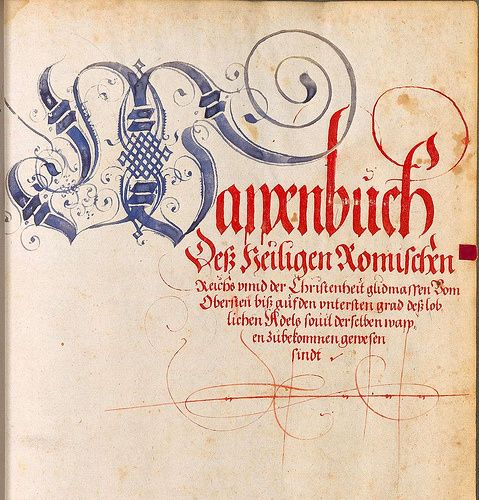 Wappenbuch
Deß Heiligen Romischen
Reichs vnnd der Christenheit glidmassen Vom
Obersten biß auf den vntersten grad deß lob
lichen Adels souil derselben wapp,
en zubekommen gewesen
sindt